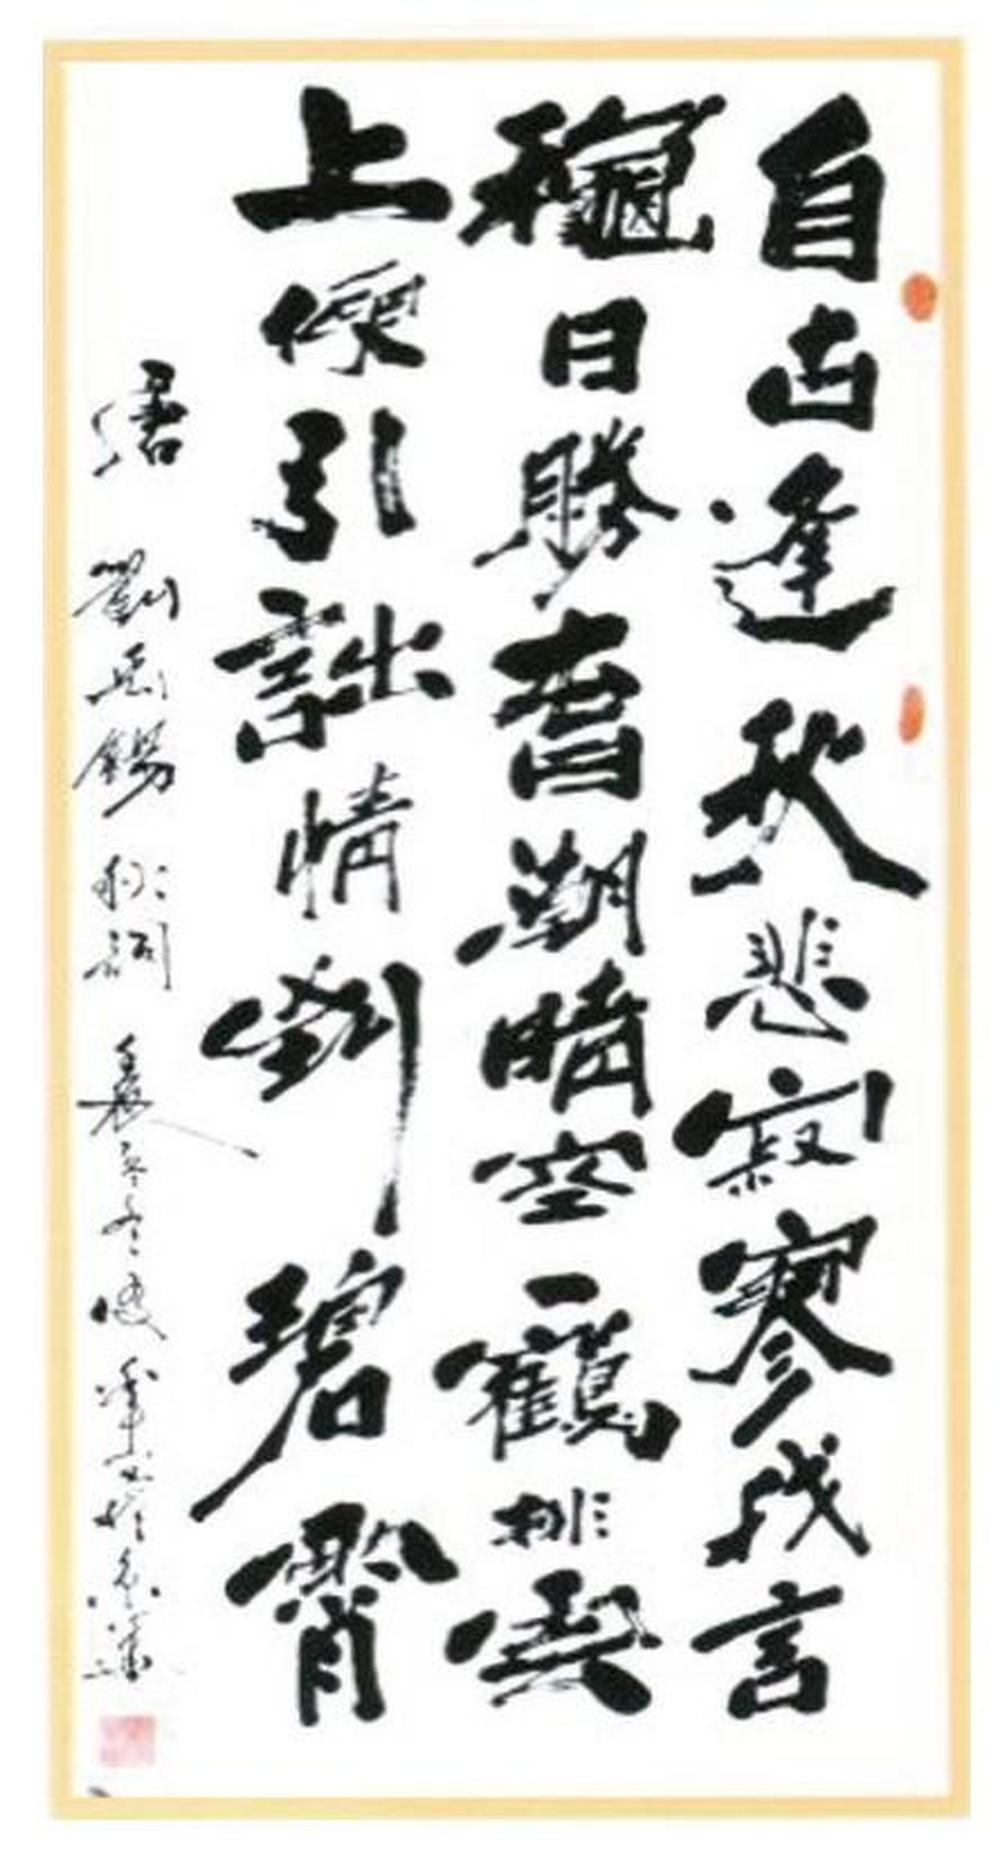 自古逢秋悲寂寥我言
龝日勝春朝晴空一鶴排雲
上便引詩情到碧霄
唐 劉禹錫 秋詞